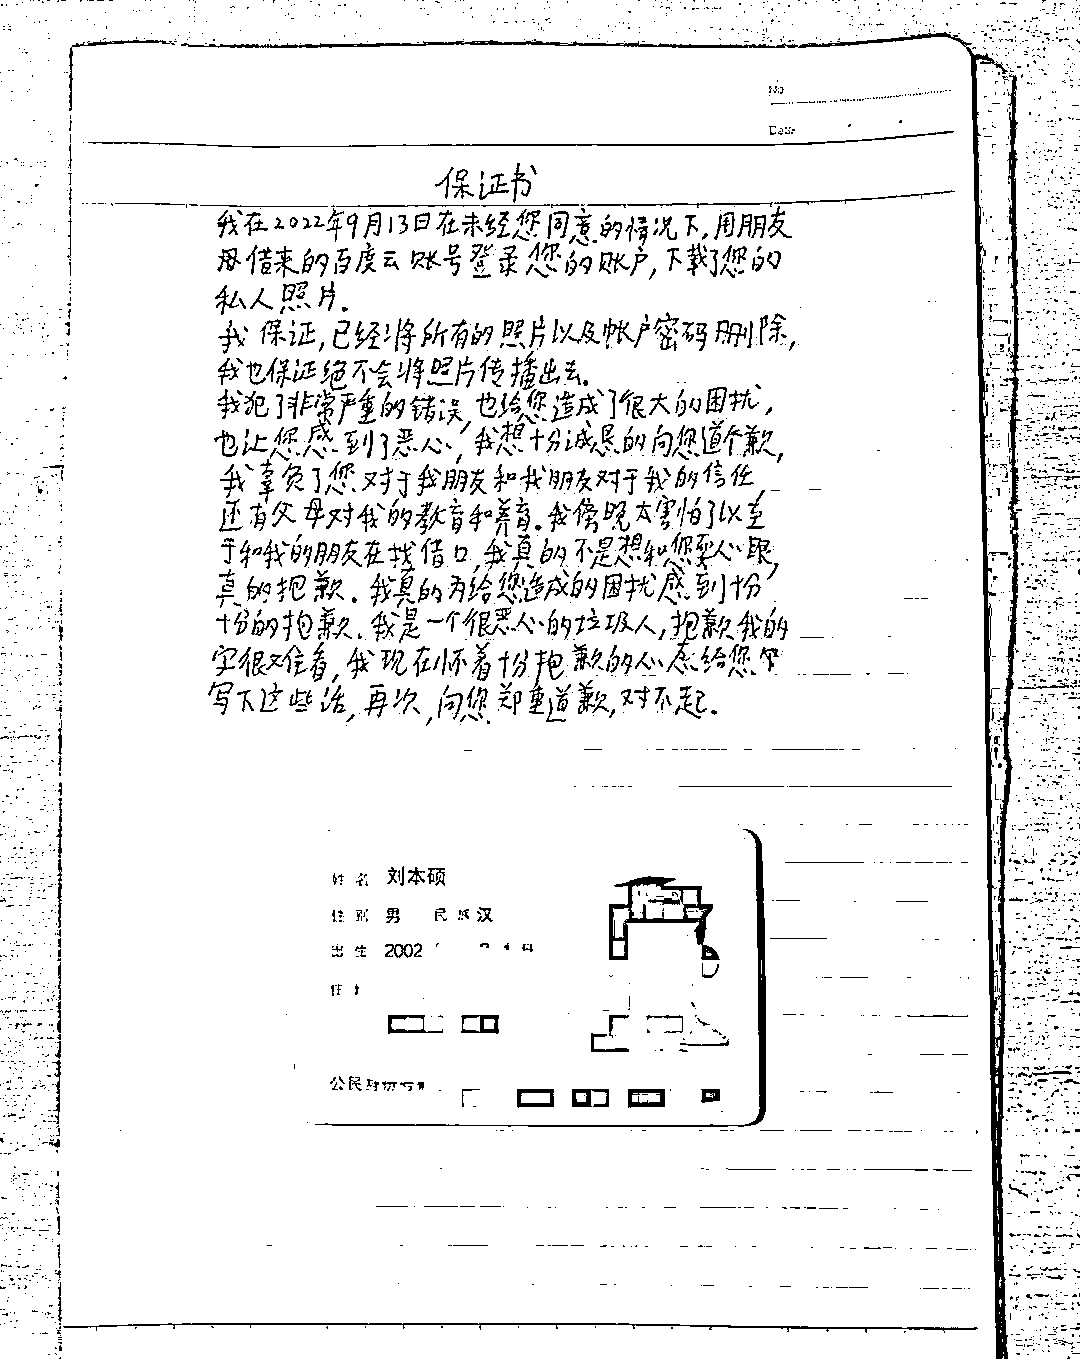 No
Date
保证书
我在2022年9月13日在未经您同意的情况下,用朋友
母借来的百度云账号登录您的账户,下载了您的
私人照片.
我保证,已经将所有的照片以及帐户密码删除,
我也保证绝不会将照片传播出去.
我犯了非常严重的错误,也给您造成了很大的困扰,
也让您感到了恶心,我想十分诚恳的向您道个歉,
我辜负了您对于我朋友和我朋友对于我的信任
还有父母对我的教育和养育.我傍晚太害怕了以至
于和我的朋友在找借口,我真的不是想和您耍心眼,
真的抱歉.我真的为给您造成的困扰感到十份
十份的抱歉.我是一个很恶心的垃圾人,抱歉我的
字很难看,我现在怀着十分抱歉的心态给您
写下这些话,再次,向您郑重道歉,对不起.
姓名 刘本硕
性别 男 民族 汉
出生 2002
住
公民身份号